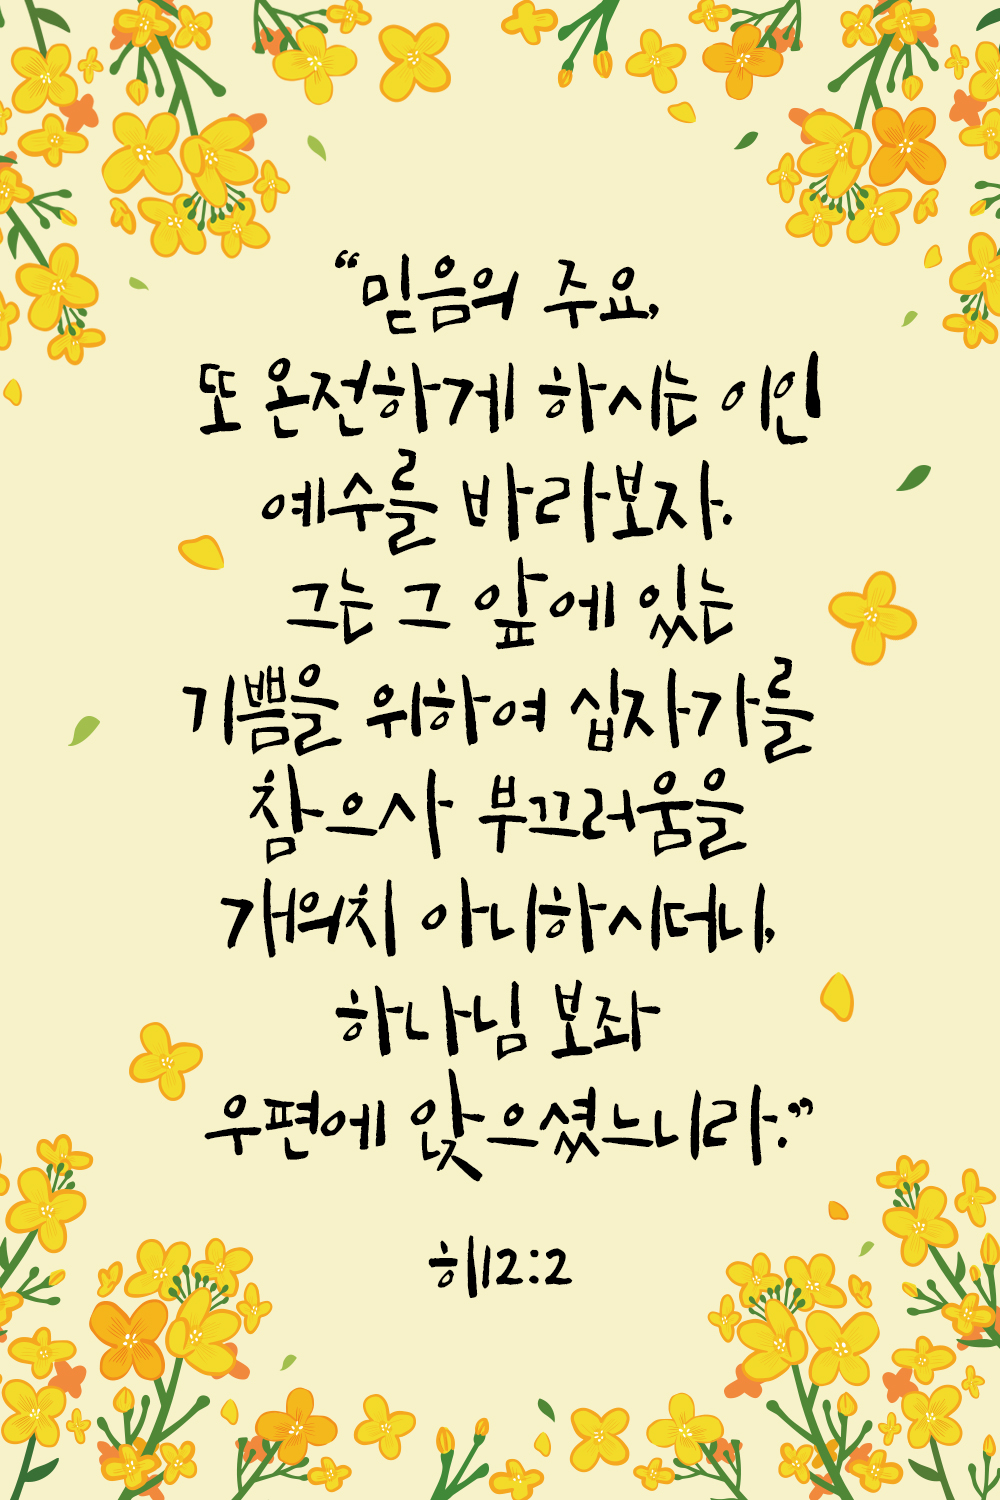 “믿음의 주요,
또 온전하게 하시는 이인
예수를 바라보자.
그는 그 앞에 있는
기쁨을 위하여 십자가를
참으사 부끄러움을
개의치 아니하시더니,
하나님 보좌
우편에 앉으셨느니라.”
히12:2